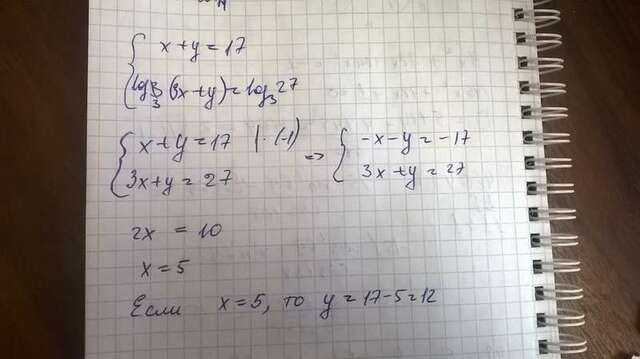 x+y=17
log₃(3x+y)=log₃27
x+y=17 |·(-1) => -x-y=-17
3x+y=27 3x+y=27
2x = 10
x=5
Если x=5, то y=17-5=12